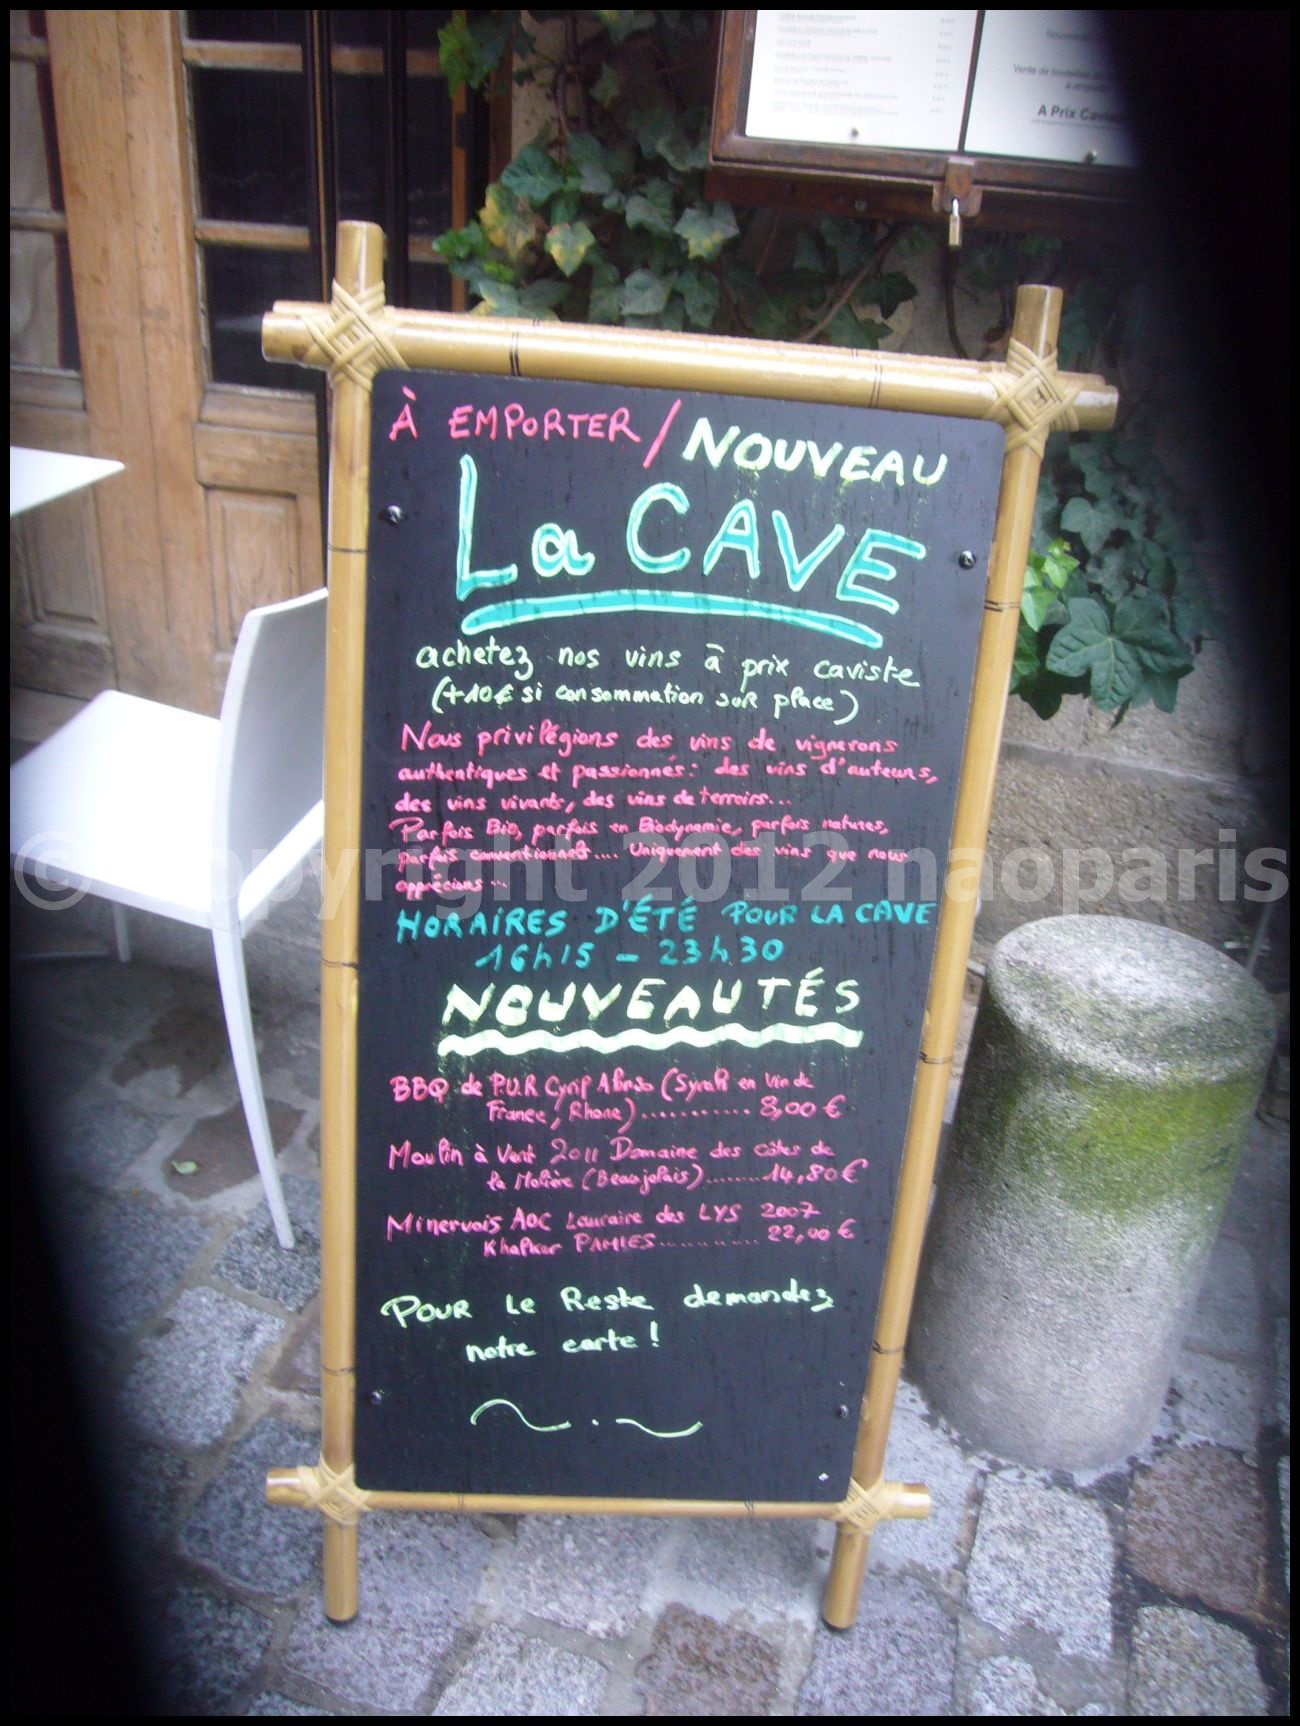 Vente de bouteilles
A Prix Caviste
À EMPORTER / NOUVEAU
La CAVE
achetez nos vins à prix caviste
(+10€ si consommation sur place)
Nous privilégions des vins de vignerons
authentiques et passionnés: des vins d'auteurs,
des vins vivants, des vins de terroirs...
Parfois Bio, parfois en Biodynamie, parfois natures,
parfois conventionnels.... Uniquement des vins que nous
apprécions...
© copyright 2012 naoparis
HORAIRES D'ÉTÉ POUR LA CAVE
16h15 - 23h30
NOUVEAUTÉS
BBQ de P.U.R Cyril Alonso (Syrah en Vin de
France, Rhone)............ 8,00 €
Moulin à Vent 2011 Domaine des côtes de
la Molière (Beaujolais)........14,80€
Minervois AOC Lauraire des LYS 2007
PAMIES............ 22,00 €
POUR LE Reste demandez
notre carte !